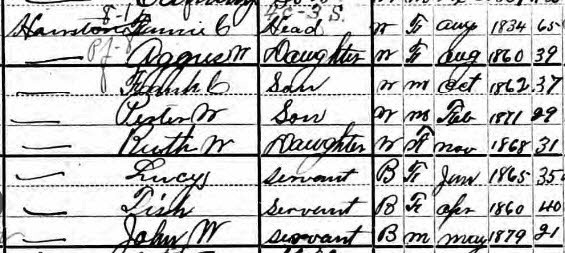 Hairston Fannie C Head W F Aug 1834 65
— Aggnes W Daughter W F Aug 1860 39
— Frank C Son W M Oct 1862 37
— Peter W Son W M Feb 1871 29
— Ruth W Daughter W F Nov 1868 31
— Lucy servant B F Jan 1865 35
— Tish servant B F Apr 1860 40
— John W servant B M May 1879 21